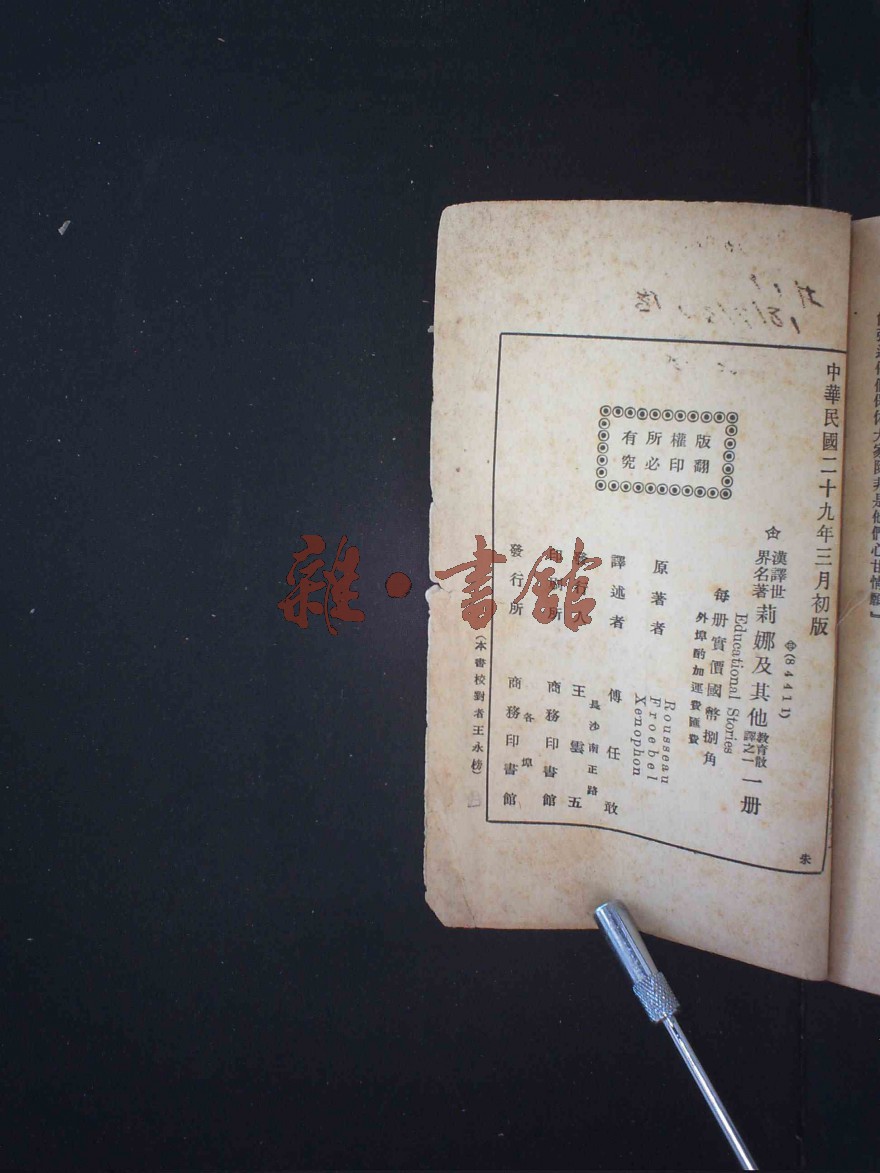 中華民國二十九年三月初版
(84411)
漢譯世
界名著
莉娜及其他
教育散
譯之一
一册
Educational Stories
每册實價國幣捌角
外埠酌加運費匯費
原著者
Rousseau
Froebel
Xenophon
譯述者
傅任敢
發行人
王雲五
長沙南正路
印刷所
商務印書館
發行所
商務印書館
各埠
(本書校對者王永榜)
版權所有
翻印必究
朱
雜·書館